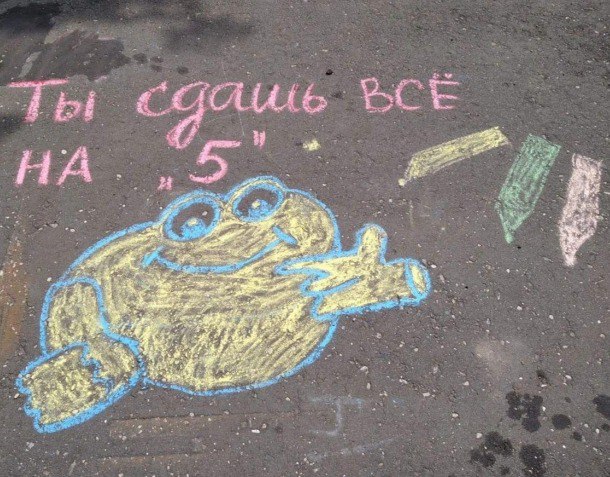 Ты сдашь всё
на „5"